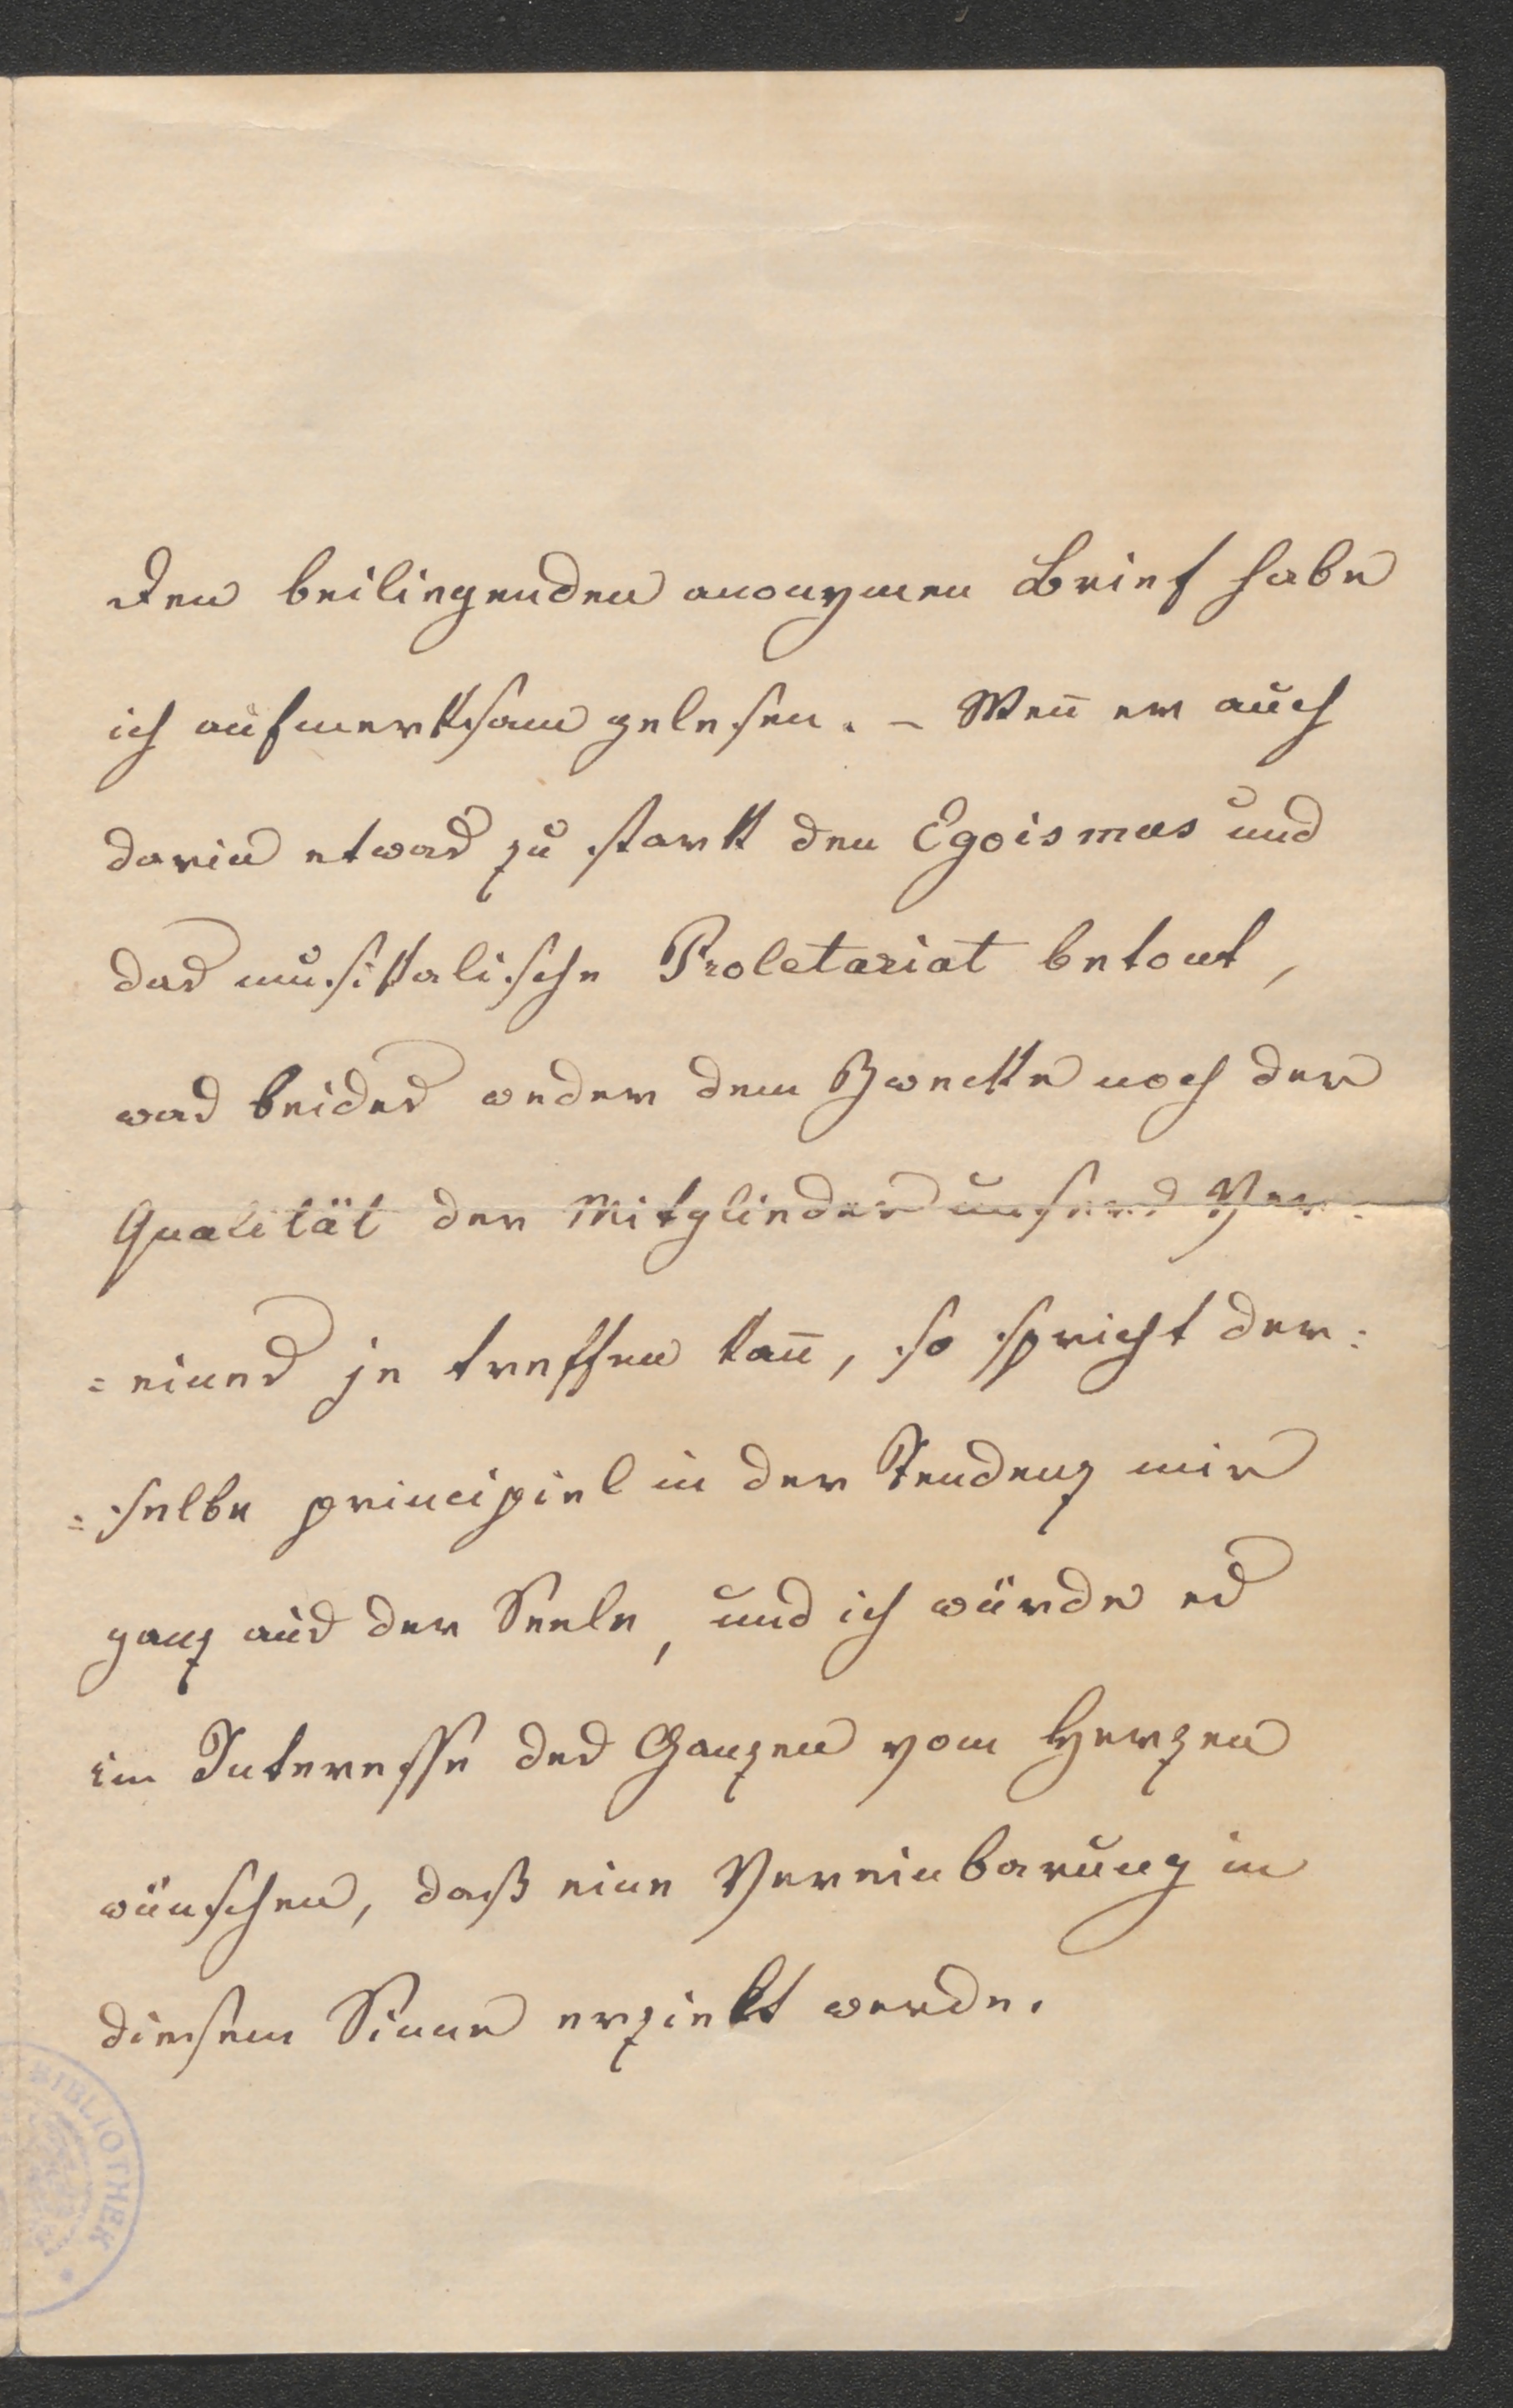 Den beiliegenden anonymen Brief habe
ich aufmerksam gelesen. – Weñ er auch
darin etwas zu stark den Egoismus und
das musikalische Proletariat betont,
was beides weder dem Zwecke noch der
Qualität der Mitglieder unseres Ver=
=eines je treffen kañ, so spricht der=
=selbe principiel in der Tendenz mir
ganz aus der Seele, und ich würde es
im Interesse des Ganzen vom Herzen
wünschen, daß eine Vereinbarung in
diesem Sinne erzielt werde.
BIBLIOTHEK